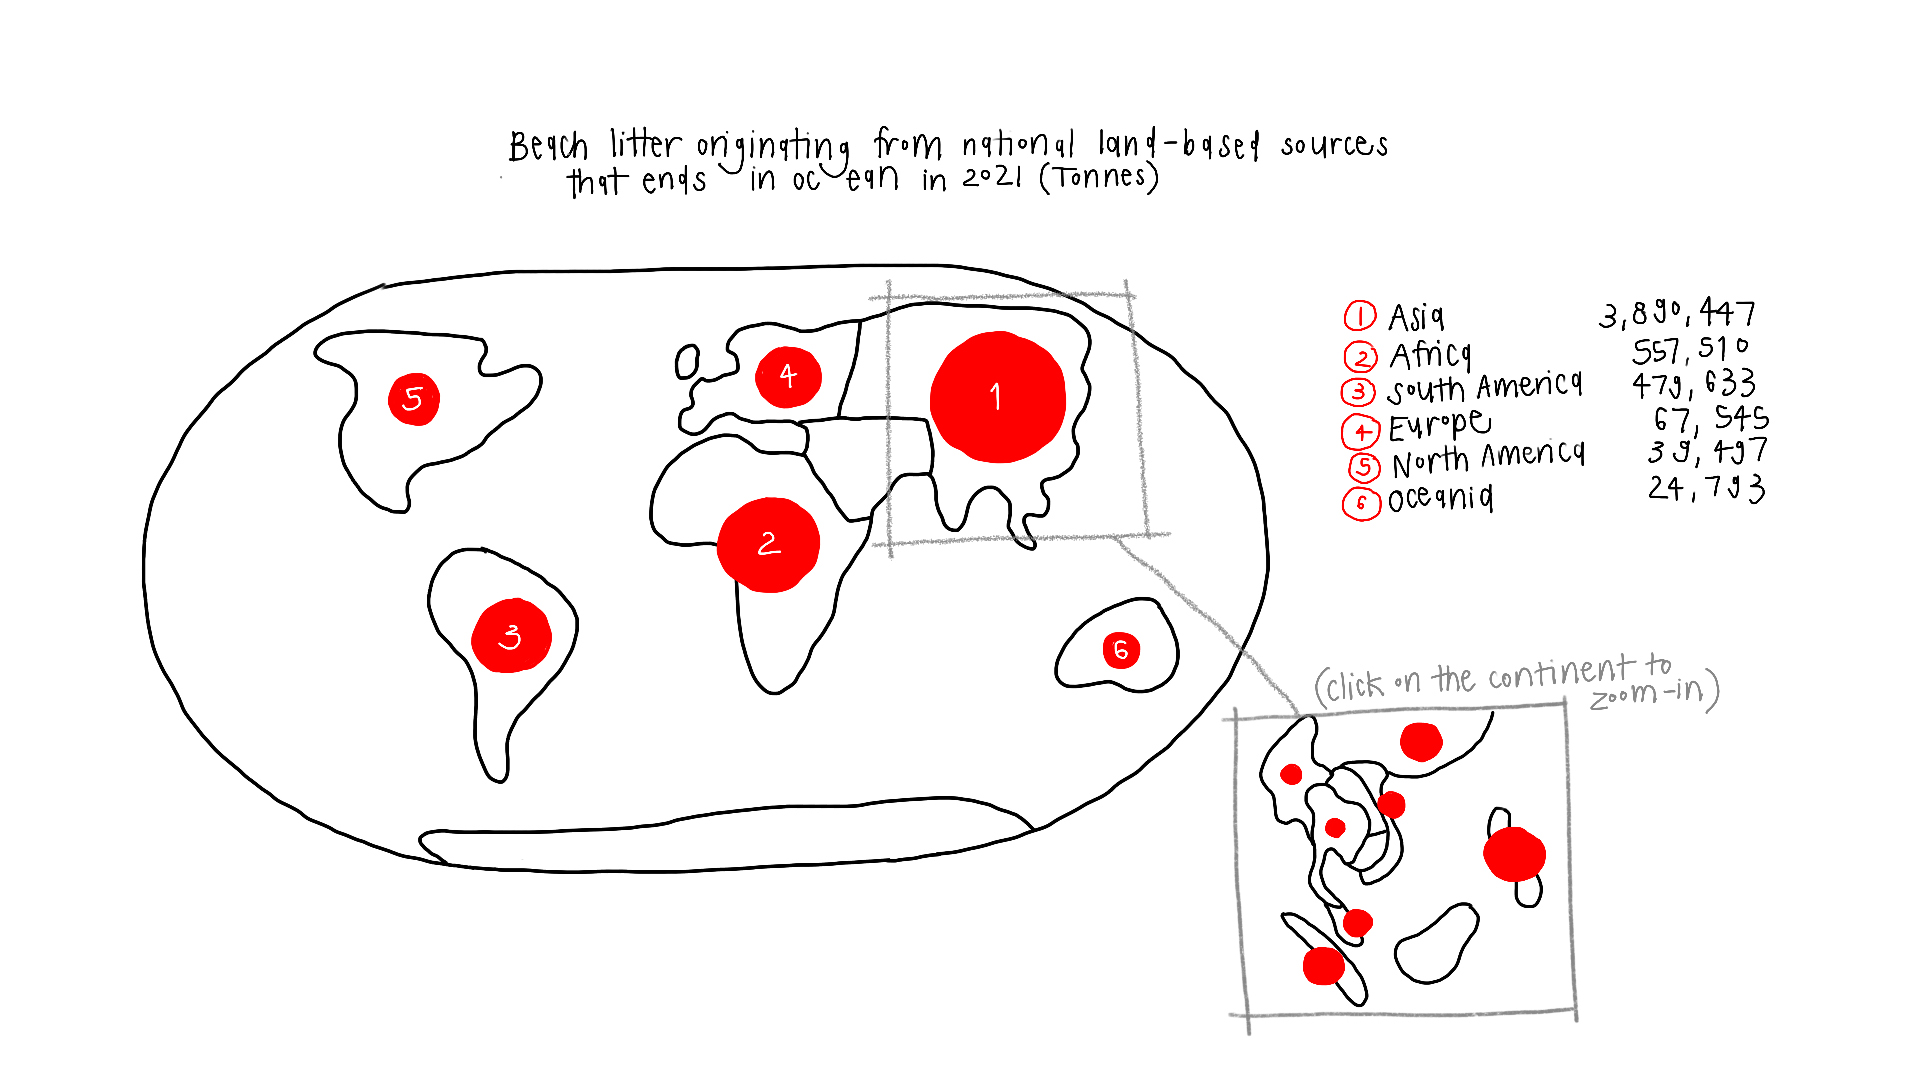 Beach litter originating from national land-based sources
that ends in ocean in 2021 (Tonnes)
1 Asia 3,890,447
2 Africa 557,510
3 south America 479,633
4 Europe 67,545
5 North America 39,497
6 oceania 24,793
4
1
5
2
3
6
(click on the continent to
zoom-in)